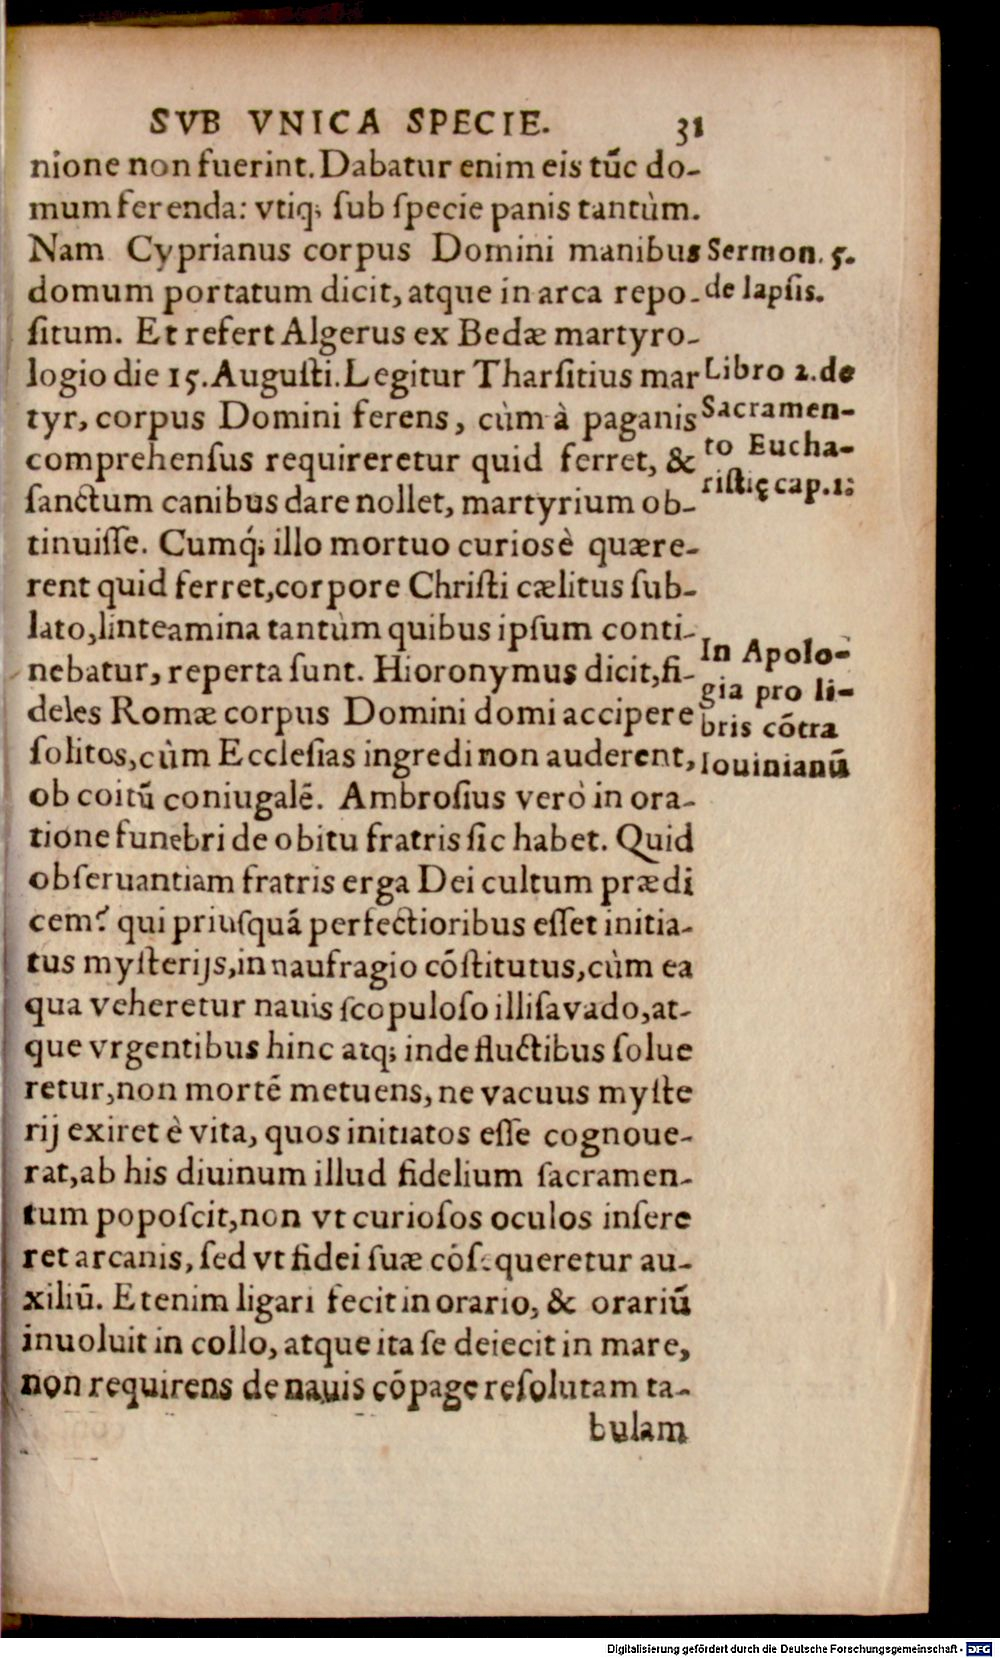 SVB VNICA SPECIE. 31
nione non fuerint. Dabatur enim eis tūc do-
mum ferenda: vtiq; ſub ſpecie panis tantùm.
Nam Cyprianus corpus Domini manibus
Sermon. 5.
domum portatum dicit, atque in arca repo-
de lapſis.
ſitum. Et refert Algerus ex Bedæ martyro-
logio die 15. Auguſti. Legitur Tharſitius mar
Libro 2. de
tyr, corpus Domini ferens, cùm à paganis
Sacramen-
comprehenſus requireretur quid ferret, &
to Eucha-
ſanctum canibus dare nollet, martyrium ob-
riſtię cap. 1:
tinuiſſe. Cumq́; illo mortuo curiosè quære-
rent quid ferret, corpore Chriſti cælitus ſub-
lato, linteamina tantùm quibus ipſum conti-
In Apolo-
nebatur, reperta ſunt. Hioronymus dicit, fi-
gia pro li-
deles Romæ corpus Domini domi accipere
bris cōtra
ſolitos, cùm Eccleſias ingredi non auderent,
Iouinianū
ob coitū coniugalē. Ambroſius verò in ora-
tione funebri de obitu fratris ſic habet. Quid
obſeruantiam fratris erga Dei cultum prædi
cem? qui priuſquā perfectioribus eſſet initia-
tus myſterijs, in naufragio cōſtitutus, cùm ea
qua veheretur nauis ſcopuloſo illiſa vado, at-
que vrgentibus hinc atq; inde fluctibus ſolue
retur, non mortē metuens, ne vacuus myſte
rij exiret è vita, quos initiatos eſſe cognoue-
rat, ab his diuinum illud fidelium ſacramen-
tum popoſcit, non vt curioſos oculos inſere
ret arcanis, ſed vt fidei ſuæ cōſequeretur au-
xiliū. Etenim ligari fecit in orario, & orariū
inuoluit in collo, atque ita ſe deiecit in mare,
non requirens de nauis cōpage reſolutam ta-
bulam
Digitalisierung gefördert durch die Deutsche Forschungsgemeinschaft - DFG